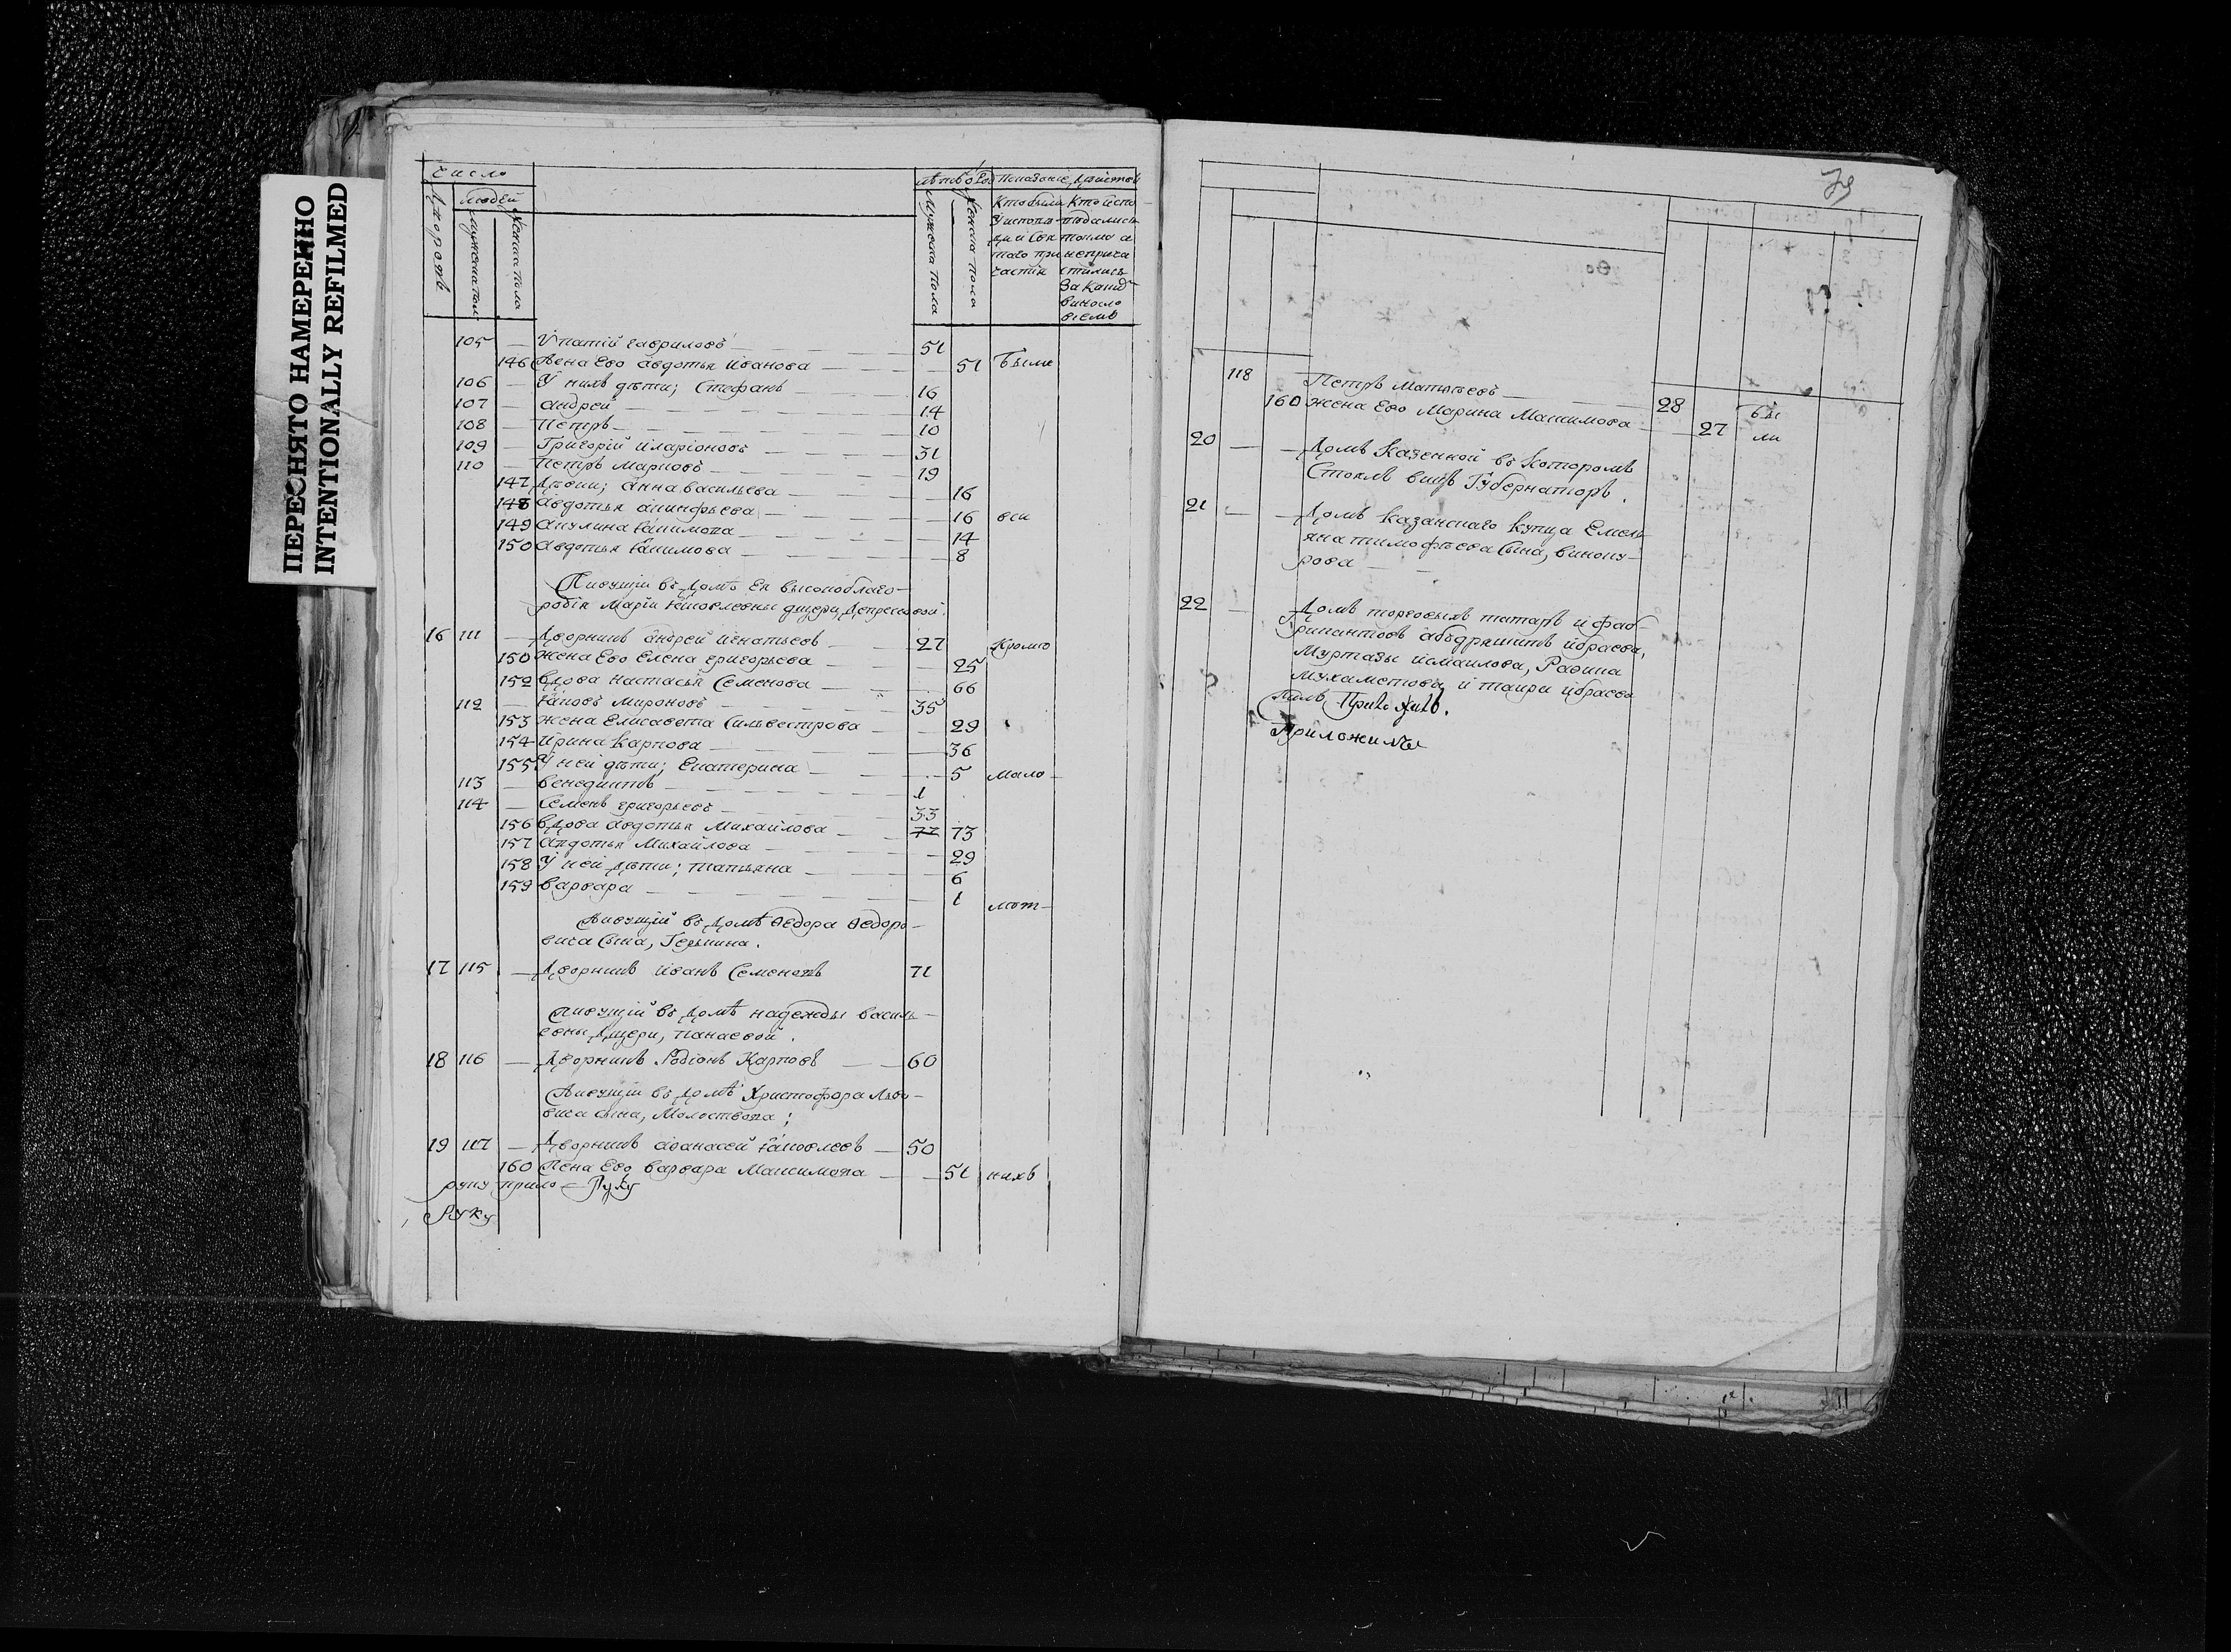 ПЕРЕСНЯТО НАМЕРЕННО
INTENTIONALLY REFILMED
Число
Дворовъ
людей
Мужеска пола
Женска пола
Мужеска пола
Женска пола
Показание действ
Кто были
У исповѣ
ди и свя
таго при
частия
Кто испо
ведались
токмо а
не прича
стились
За каким
виносло
виемъ
105 — Ипатий Гавриловъ — 51
146 Жена Его Авдотья Иванова — 51 Были
106 — У нихъ дѣти; Стефанъ — 16
107 — Андрей — 14
108 — Петръ — 10
109 — Григорий Иларионовъ — 31
110 — Петръ Марковъ — 19
147 Анна Васильева — 16
148 Авдотья — 16 вси
149 Акулина Якимова — 14
150 Авдотья Якимова — 8
Живущии въ Домѣ Ея высокоблаго-
родия Марии Яковлевны дщери,
16 111 — Дворникъ Андрей Игнатьевъ — 27 Кромѣ
150 Жена Его Елена Григорьева — 25
152 Вдова Настасья Семенова — 66
112 — Яковъ Мироновъ — 35
153 Жена Елисавета Сильвестрова — 29
154 Ирина Карпова — 36
155 У ней дѣти; Екатерина — 5 мало-
113 — Венедиктъ — 1
114 — Семенъ Григорьевъ — 33
156 Вдова Авдотья Михайлова — 77 73
157 Авдотья Михайлова — 29
158 У ней дѣти; Татьяна — 6
159 Варвара — 1 лѣт-
Живущий въ Домѣ Ѳедора Ѳедоро-
вича Сына,
17 115 — Дворникъ Иванъ Семеновъ 71
Живущий въ Домѣ Надежды Василь-
евны Дщери, Панаевой.
18 116 — Дворникъ Родионъ Карповъ — 60
Живущии въ Домѣ Христофора Льво-
вича сына, Молоствова;
19 117 — Дворникъ Афанасей Яковлевъ — 50
160 Жена Его Варвара Максимова — 51 нихъ
руку прило- Руку
Руку
79
118 Петръ Матвѣевъ — 28 бы
160 Жена Его Марина Максимова — 27 ли
20 — Домъ Казенной въ Которомъ
Губернаторъ.
21 — Домъ Казанскаго Купца Емель
яна Тимофѣева Сына, Виноку-
рова
22 — Домъ торговыхъ татаръ и фаб-
рикантовъ Абдряшитъ Ибраева,
Муртазы Исмаилова,
Мухаметова, и Таири Ибраева
Приложилъ